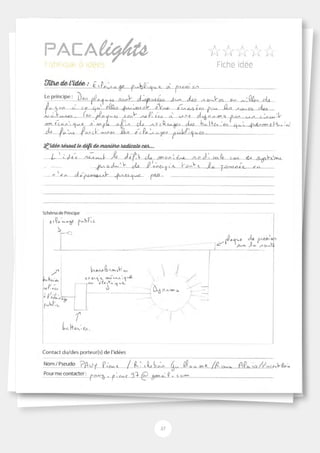 PACAlights
Fabrique à idées
Fiche idée
Titre de l'idée : éclairage publique à pression
Le principe : Des plaques sont disposées sur des routes en villes de
façon à ce qu'elles puissent être écrasées par les roues des
voitures. Les plaques sont reliées à une dynamo par un circuit
mécanique simple afin de recharger des batteries qui permettent
de faire fonctionner les éclairages publiques.
L'idée résout le défi de manière radicale car...
L'idée résout le défi de manière radicale car ce système
produit de l'énergie toute la journée en
n'en dépensant presque pas.
Schéma de Principe
éclairage public
plaque de pression
sur la route
batteries
reliées
à l'éclairage
public
transformation
énergie mécanique
en électrique
Dynamo
batteries
Contact du/des porteur(s) de l'idées
Nom / Pseudo :
Pour me contacter :
37